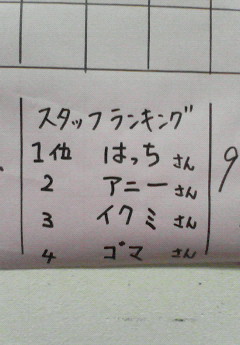 スタッフランキング
1位 はっち さん
2 アニー さん
3 イクミ さん
4 ゴマ さん
9